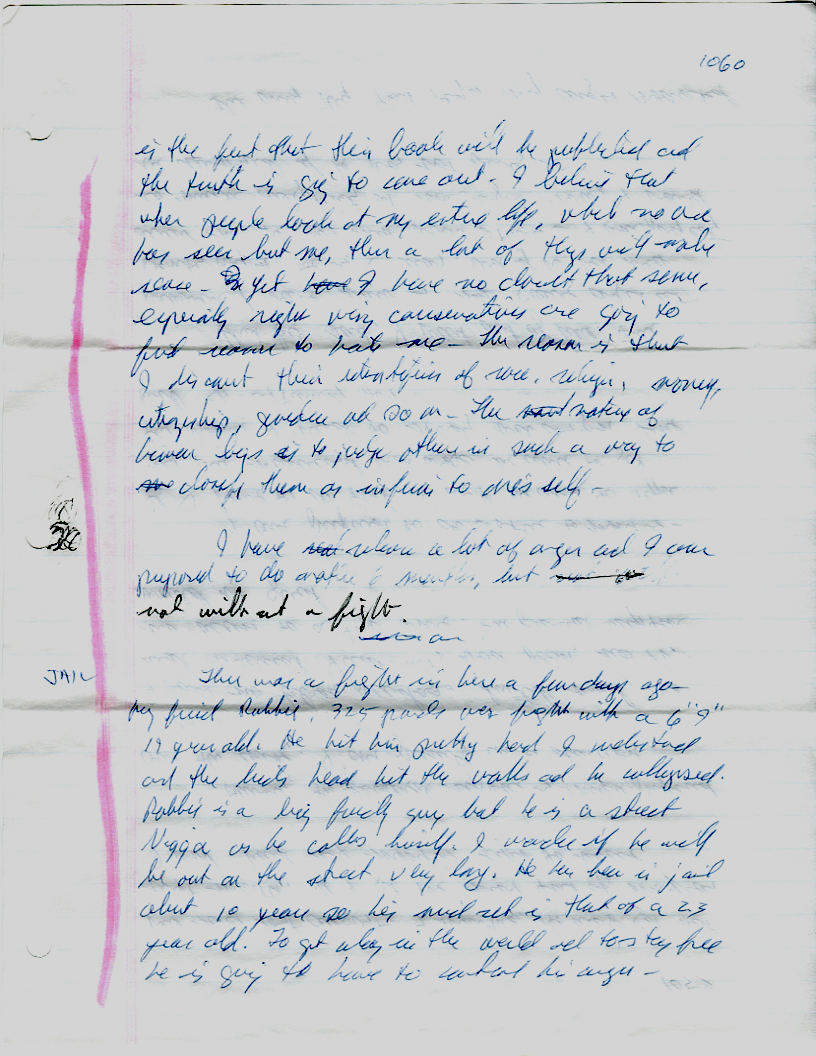 1060
is the fact that this book will be published and
the truth is going to come out - I believe that
when people look at my entire life, which no one
has seen but me, then a lot of things will make
sense - yet I have no doubt that some,
especially right wing conservatives are going to
find reason to hate me - The reason is that
I discount their of race, religion, money,
citizenship, gender and so on - The nature of
human beings is to judge others in such a way to
classify them as inferior to one's self -
I have a lot of anger and I am
prepared to do another 6 months, but
not without a fight.
JAIL
There was a fight in here a few days ago -
my friend Robbie, 325 pounds was fight with a 6' 9"
19 year old. He hit him pretty hard I understand
and the kids head hit the walls and he collapsed.
Robbie is a big friendly guy but he is a street
Nigga as he calls himself. I wonder if he will
be out on the street very long. He has been in jail
about 10 years so his mind set is that of a 23
year old. To get along in the world and to stay free
he is going to have to control his anger -